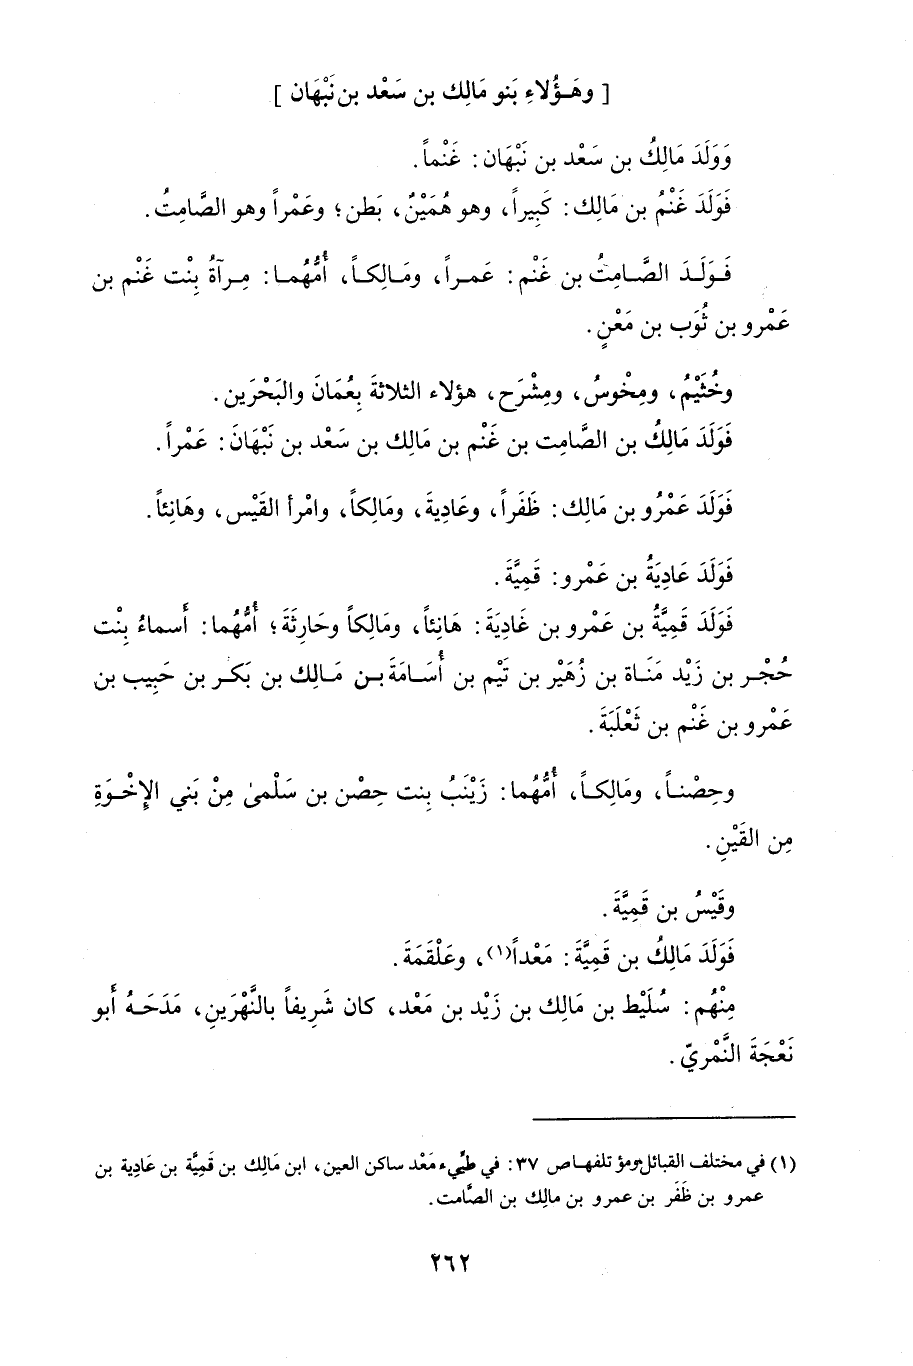 [ وهَـؤُلاءِ بَنو مَالِك بن سَعْد بن نَبْهَان ]
وَوَلَدَ مَالِكُ بن سَعْد بن نَبْهَان : غَنْماً .
فَوَلَدَ غَنْمُ بن مَالِك : كَبِيراً ، وهو هُمَيْنٌ ، بَطن ؛ وعَمْراً وهو الصَّامِتُ .
فَـوَلَـدَ الصَّـامِتُ بن غَنْم : عَمـراً ، ومَـالِكـاً ، أُمُّهُمـا : مِـرآةُ بِنْت غَنْم بن
عَمْرو بن ثُوَب بن مَعْنٍ .
وخُثَيْمُ ، ومِخْوسُ ، ومِشْرَح ، هؤلاء الثلاثةَ بِعُمَانَ والبَحْرَين .
فَوَلَدَ مَالِكُ بن الصَّامِت بن غَنْم بن مَالِك بن سَعْد بن نَبْهَانَ : عَمْراً .
فَوَلَدَ عَمْرُو بن مَالِك : ظَفَراً ، وعَادِيةَ ، ومَالِكاً ، وامْرأ القَيْس ، وهَانِئاً .
فَوَلَدَ عَادِيَةُ بن عَمْرو : قَمِيَّةَ .
فَوَلَدَ قَمِيَّةُ بن عَمْرو بن غَادِيَةَ : هَانِئاً ، ومَالِكاً وحَارِثَةَ ؛ أُمُّهُما : أَسماءُ بِنْت
حُجْـر بن زَيْد مَنَـاة بن زُهَيْر بن تَيْم بن أُسَـامَةَ بـن مَـالِك بن بَكـر بن حَبِيب بن
عَمْرو بن غَنْم بن ثَعْلَبَةَ .
وحِصْنـاً ، ومَالِكـاً ، أُمُّهُما : زَيْنَبُ بِنت حِصْن بن سَلْمىٰ مِنْ بَني الإِخْـوَةِ
مِن القَيْنِ .
وقَيْسُ بن قَمِيَّةَ .
فَوَلَدَ مَالِكُ بن قَمِيَّةَ : مَعْداً(١) ، وعَلْقَمَةَ .
مِنْهُم : سُلَيْط بن مَالِك بن زَيْد بن مَعْد ، كان شَرِيفاً بالنَّهْرَينِ ، مَدَحَـهُ أَبو
نَعْجَةَ النَّمْريّ .
(١) في مختلف القبائل ومؤتلفهـا ص ٣٧ : في طيِّىء مَعْد ساكن العين ، ابن مَالِك بن قَمِيَّة بن عَادِية بن
عمرو بن ظَفَر بن عمرو بن مالِك بن الصَّامت .
٢٦٢